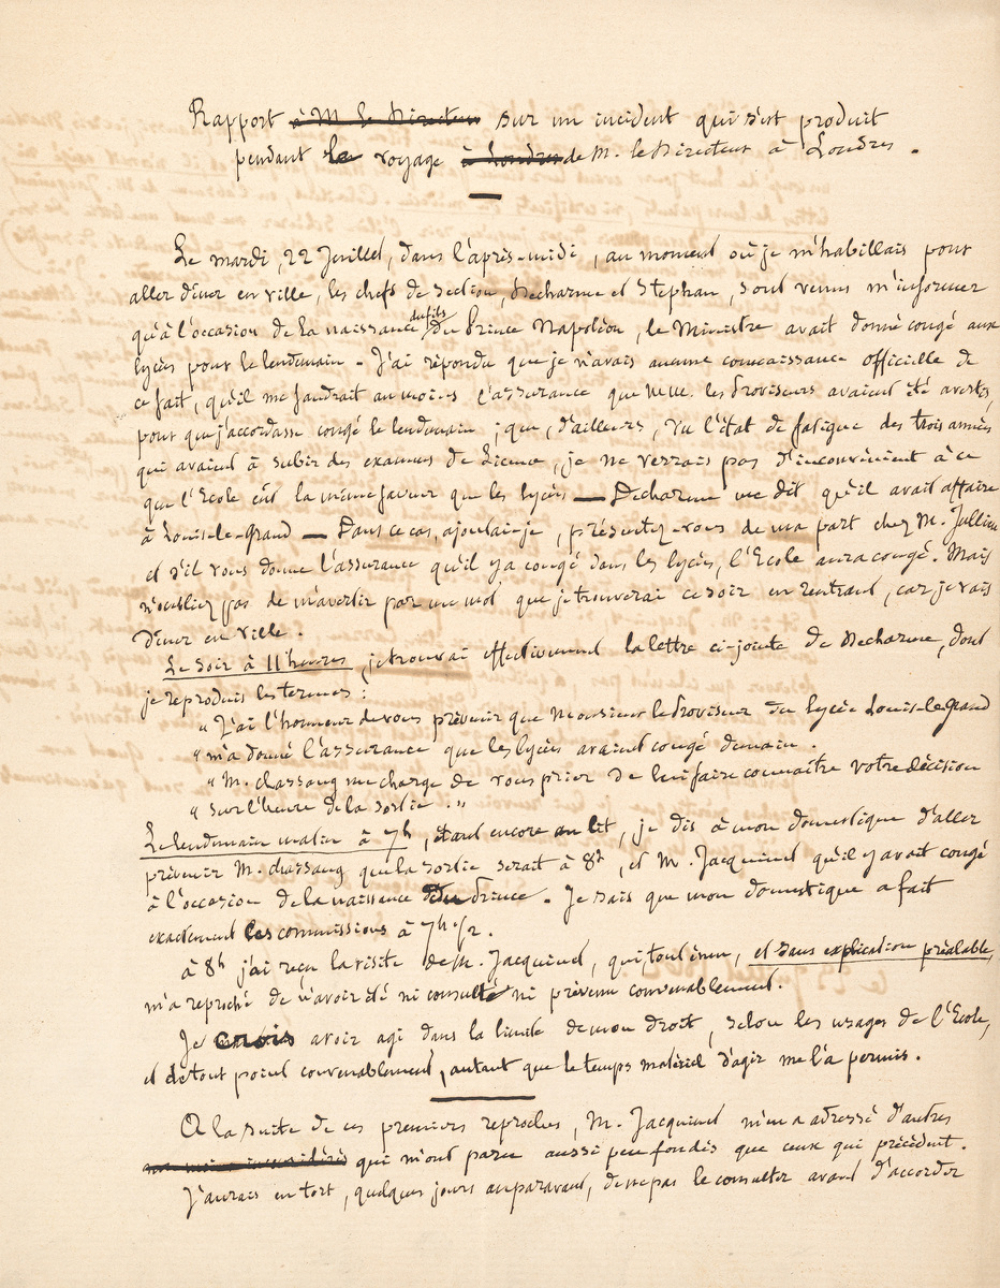 Rapport à M. le Directeur sur un incident qui s'est produit
pendant le voyage à Londres de M. le Directeur à Londres.
Le mardi, 22 Juillet, dans l'après-midi, au moment où je m'habillais pour
aller dîner en ville, les chefs de section, Decharme et Stephan, sont venus m'informer
du fils
qu'à l'occasion de la naissance du Prince Napoléon, le Ministre avait donné congé aux
lycées pour le lendemain - J'ai répondu que je n'avais aucune connaissance officielle de
ce fait, qu'il me faudrait au moins l'assurance que MM. les Proviseurs avaient été avertis,
pour que j'accordasse congé le lendemain ; que, d'ailleurs, vu l'état de fatigue des trois années
qui avaient à subir des examens de Licence, je ne verrais pas d'inconvénient à ce
que l'Ecole eût la même faveur que les lycées — Decharme me dit qu'il avait affaire
à Louis-le-Grand — Dans ce cas, ajoutai-je, présentez-vous de ma part chez M. Jullien
et s'il vous donne l'assurance qu'il y a congé dans les lycées, l'Ecole aura congé. Mais
n'oubliez pas de m'avertir par un mot que je trouverai ce soir en rentrant, car je vais
dîner en ville.
Le soir à 11 heures, je trouvai effectivement la lettre ci-jointe de Decharme, dont
je reproduis les termes :
" J'ai l'honneur de vous prévenir que Monsieur le Proviseur du lycée Louis-le-Grand
" m'a donné l'assurance que les lycées avaient congé demain.
" M. Chassang me charge de vous prier de lui faire connaître votre décision
" sur l'heure de la sortie. "
Le lendemain matin à 7h, étant encore au lit, je dis à mon domestique d'aller
prévenir M. Chassang que la sortie serait à 8h, et M. Jacquinet qu'il y avait congé
à l'occasion de la naissance du Prince. Je sais que mon domestique a fait
exactement les commissions à 7h 1/2.
à 8h j'ai reçu la visite de M. Jacquinet, qui, tout ému, et sans explication préalable,
m'a reproché de n'avoir été ni consulté ni prévenu convenablement.
Je crois avoir agi dans la limite de mon droit, selon les usages de l'Ecole,
et de tout point convenablement, autant que le temps matériel d'agir me l'a permis.
A la suite de ces premiers reproches, M. Jacquinet m'en a adressé d'autres
qui m'ont paru aussi peu fondés que ceux qui précèdent.
J'aurais eu tort, quelques jours auparavant, de ne pas le consulter avant d'accorder